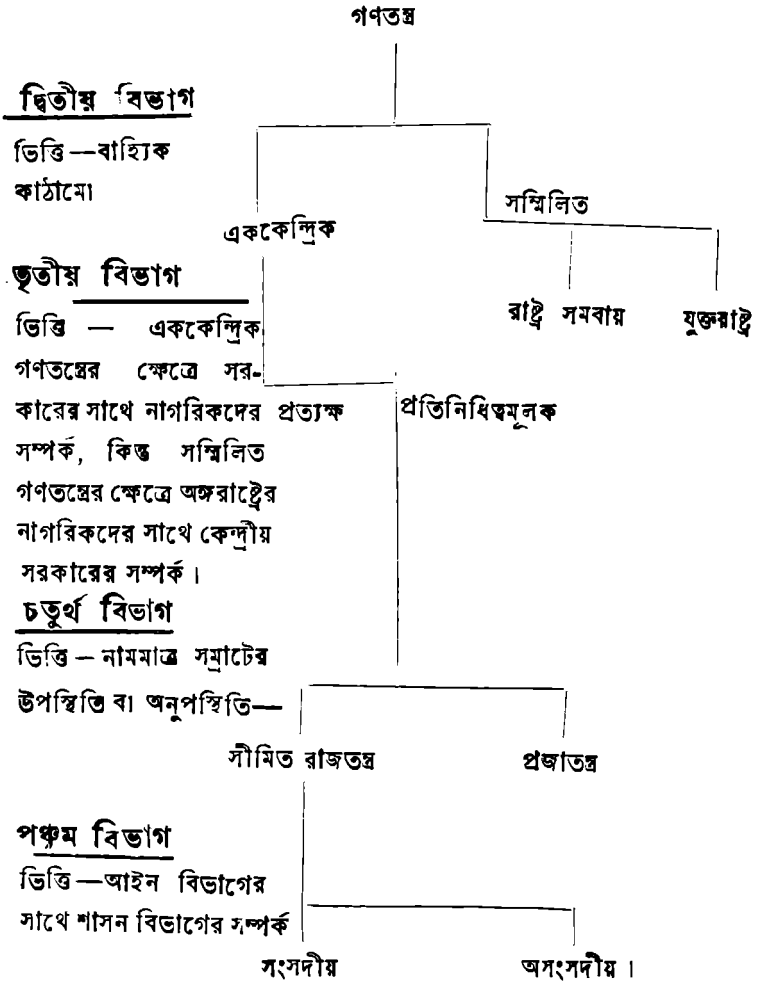 গণতন্ত্র
দ্বিতীয় বিভাগ
ভিত্তি—বাহ্যিক
কাঠামো
সম্মিলিত
এককেন্দ্রিক
তৃতীয় বিভাগ
রাষ্ট্র সমবায় যুক্তরাষ্ট্র
ভিত্তি — এককেন্দ্রিক
গণতন্ত্রের ক্ষেত্রে সর-
কারের সাথে নাগরিকদের প্রত্যক্ষ প্রতিনিধিত্বমূলক
সম্পর্ক, কিন্তু সম্মিলিত
গণতন্ত্রের ক্ষেত্রে অঙ্গরাষ্ট্রের
নাগরিকদের সাথে কেন্দ্রীয়
সরকারের সম্পর্ক ।
চতুর্থ বিভাগ
ভিত্তি – নামমাত্র সম্রাটের
উপস্থিতি বা অনুপস্থিতি—
সীমিত রাজতন্ত্র প্রজাতন্ত্র
পঞ্চম বিভাগ
ভিত্তি—আইন বিভাগের
সাথে শাসন বিভাগের সম্পর্ক
সংসদীয় অসংসদীয় ।